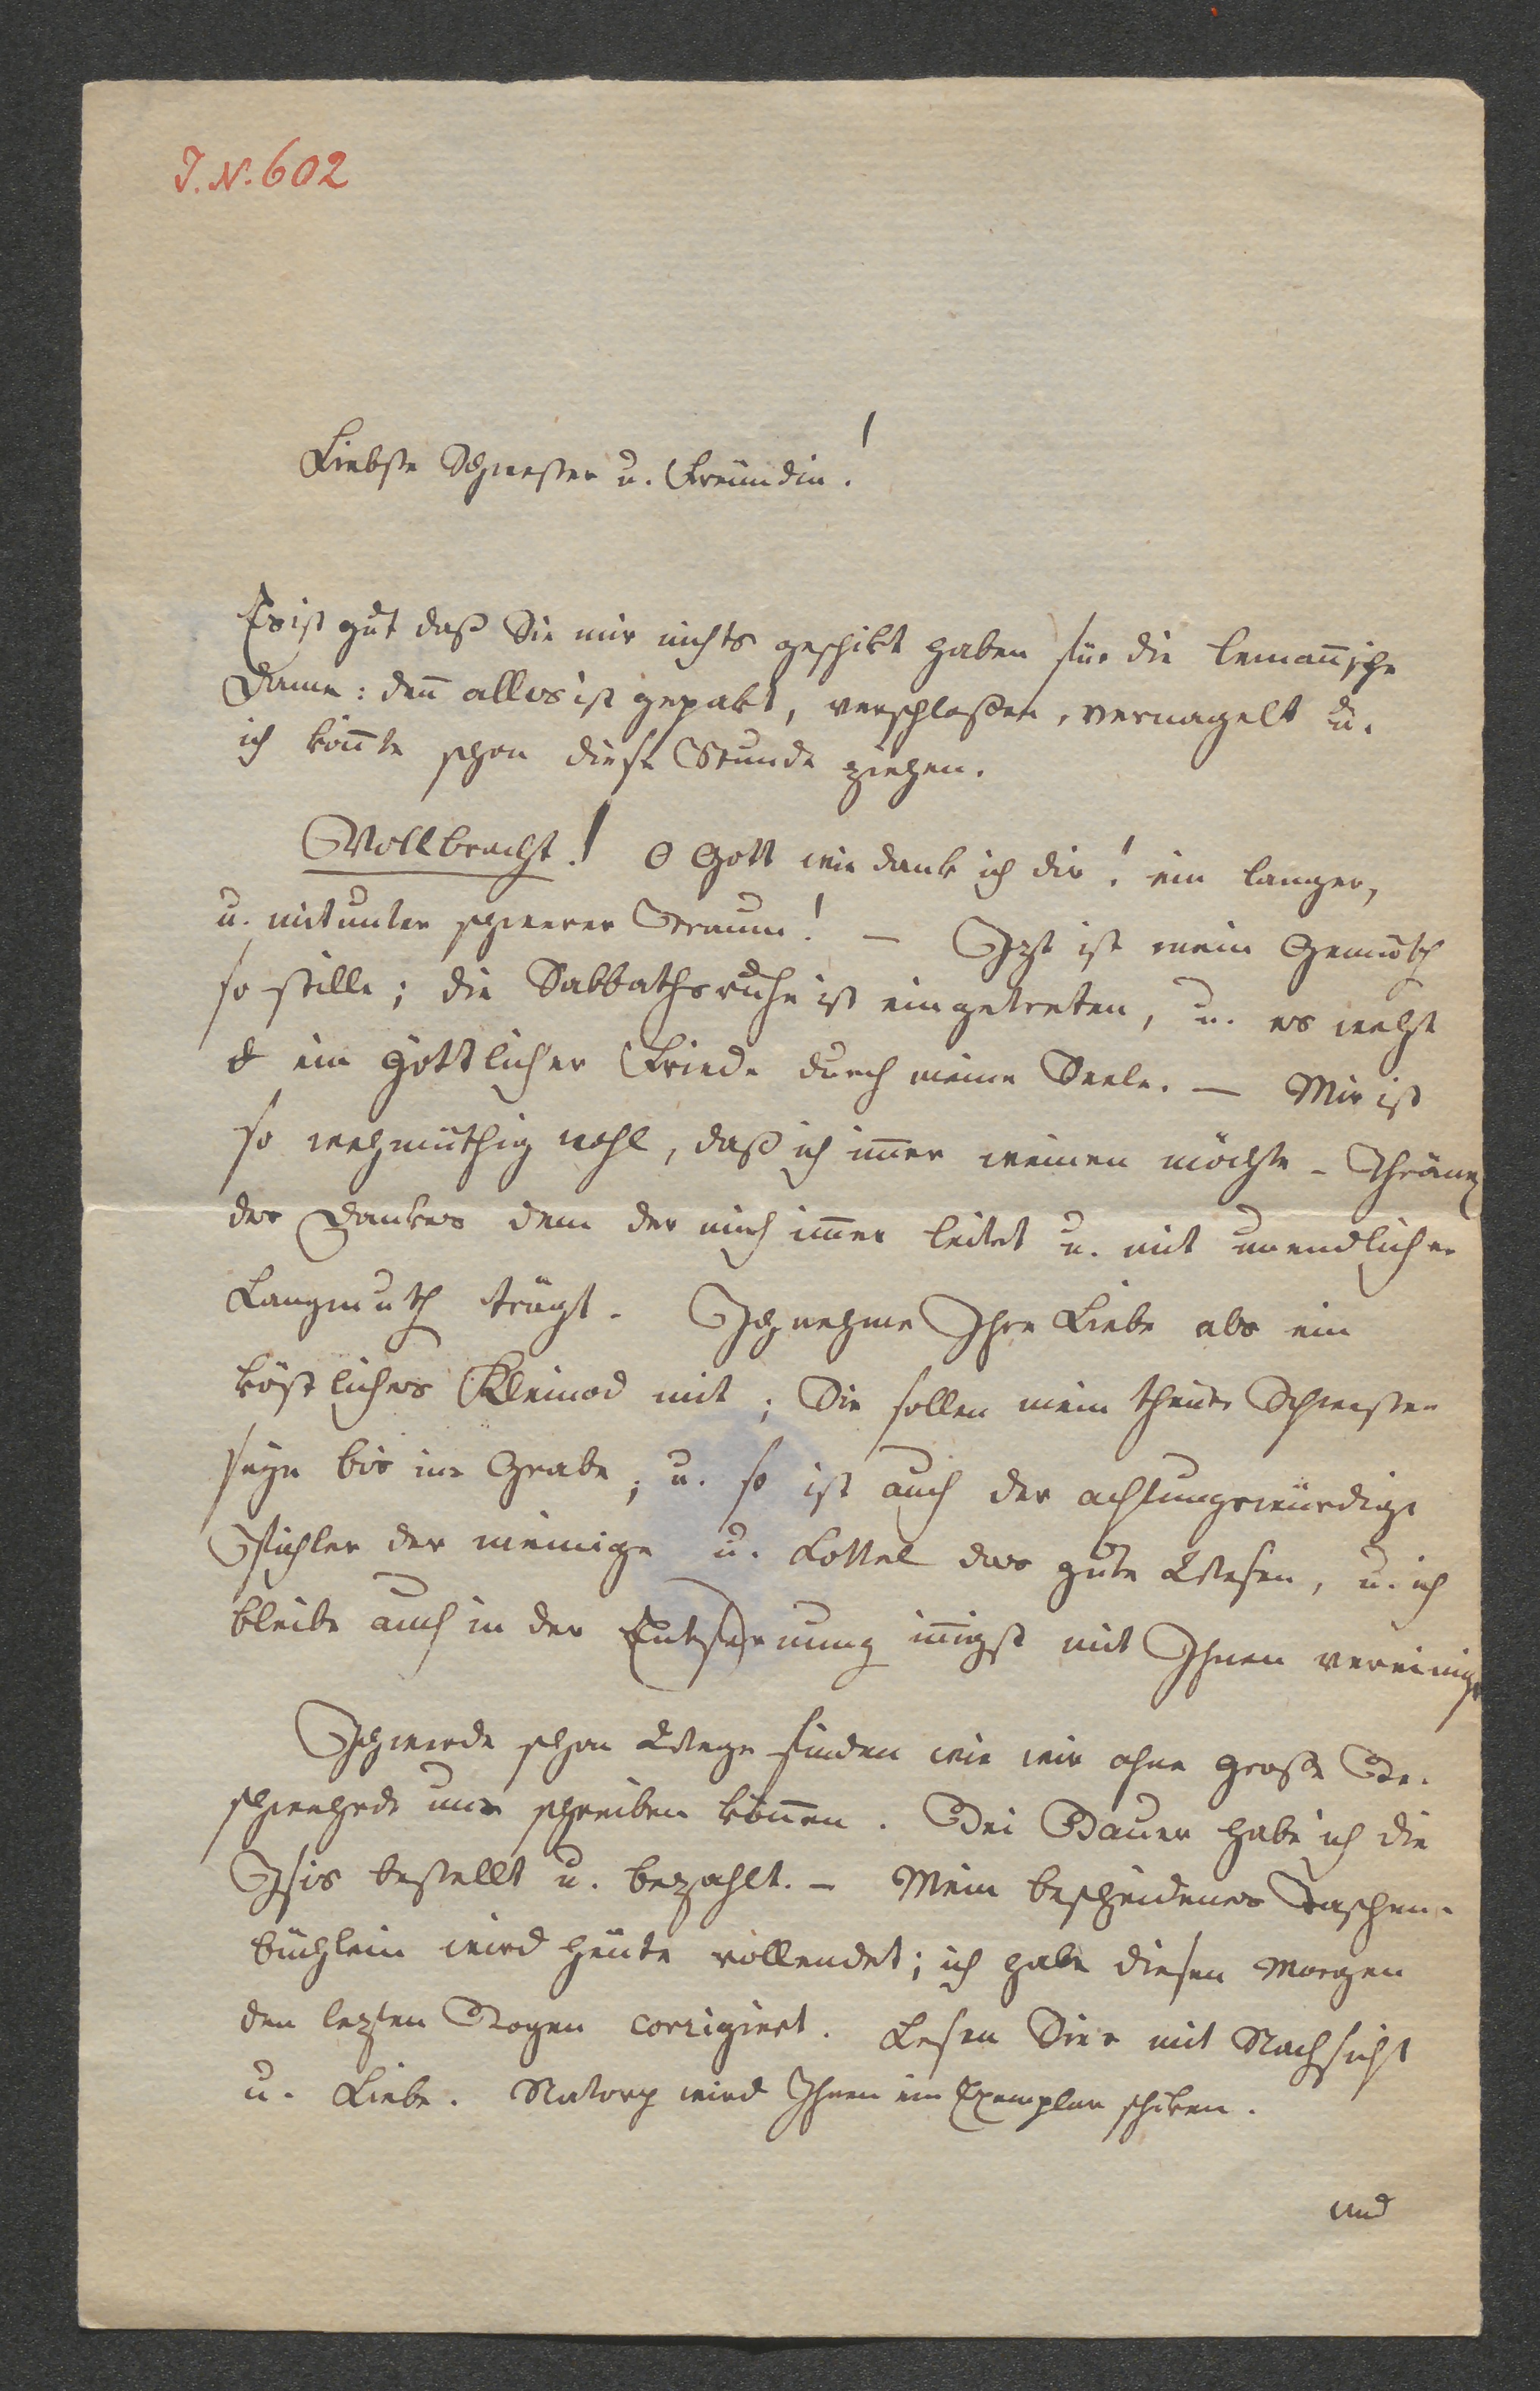 J. N. 602
Liebste Schwester u. Freundin!
Es ist gut daß Sie mir nichts geschikt haben für die lemañische
Dame: deñ alles ist gepakt, verschloßen, vernagelt u.
ich köñte schon diese Stunde ziehen.
Vollbracht! O Gott wie dank ich dir! ein langer,
u. mitunter schwerer Traum! — Izt ist mein Gemüth
so stille; die Sabbathsruhe ist eingetreten, u. es weht
ein göttlicher Friede durch meine Seele. — Mir ist
so wehmüthig wohl, daß ich im̄er weinen möchte - Thränen
des Dankes dem der mich im̄er leitet u. mit unendlicher
Langmuth trägt. Ich nehme Ihre Liebe als ein
köstliches Kleinod mit; Sie sollen mein theure Schwester
seyn bis ins Grabe; u. so ist auch der achtungswürdige
Pichler der meinige u. Lottel das gute Wesen, u. ich
bleibe auch in der Entfernung iñigst mit Ihnen vereinigt
Ich werde schon Wege finden wie wir ohne große Be-
schwehrde uns schreiben köñen. Bei Bauer habe ich die
Isis bestellt u. bezahlt. - Mein bescheidenes Taschen-
büchlein wird heute vollendet; ich habe diesen Morgen
den lezten Bogen corrigiert. Lesen Sie's mit Nachsicht
u. Liebe. Natorp wird Ihnen ein Exemplar schiken.
und